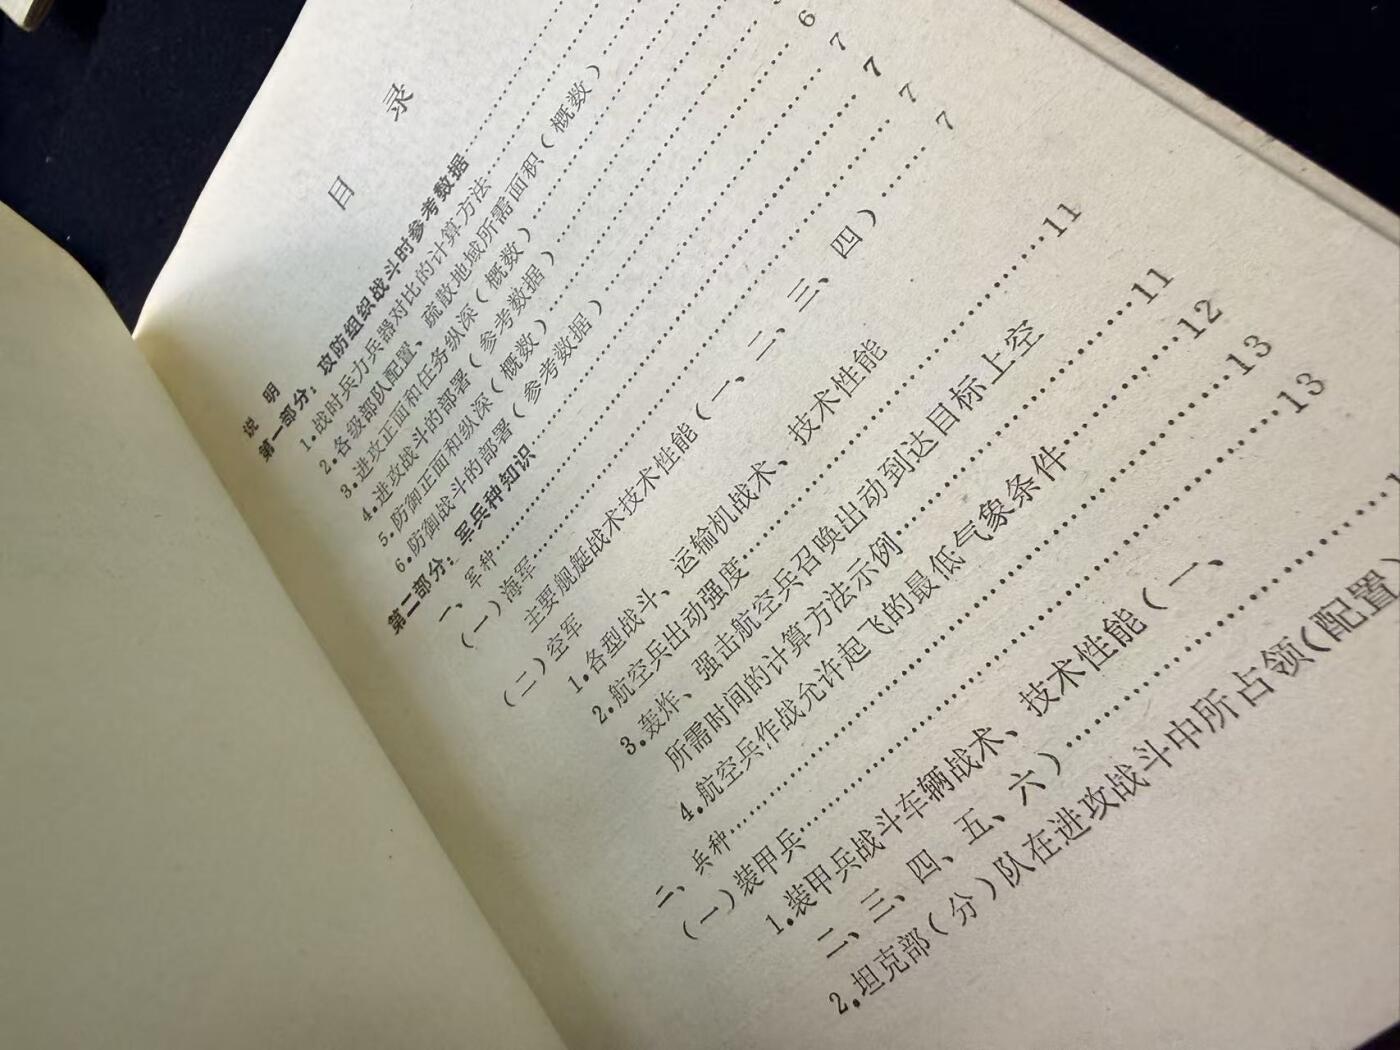 目 录
说 明
第一部分：攻防组织战斗时参考数据
1.战时兵力兵器对比的计算方法
2.各级部队配置、疏散地域所需面积（概数）
3.进攻正面和任务纵深（概数）
4.进攻战斗的部署（参考数据）
5.防御正面和纵深（概数）
6.防御战斗的部署（参考数据）……6
第二部分：军兵种知识……7
一、军种……7
（一）海军……7
主要舰艇战术技术性能（一、二、三、四）……7
（二）空军
1.各型战斗、运输机战术、技术性能
2.航空兵出动强度……11
3.轰炸、强击航空兵召唤出动到达目标上空
所需时间的计算方法示例……11
4.航空兵作战允许起飞的最低气象条件……12
二、兵种……13
（一）装甲兵……13
1.装甲兵战斗车辆战术、技术性能（一、
二、三、四、五、六）……
2.坦克部（分）队在进攻战斗中所占领（配置）